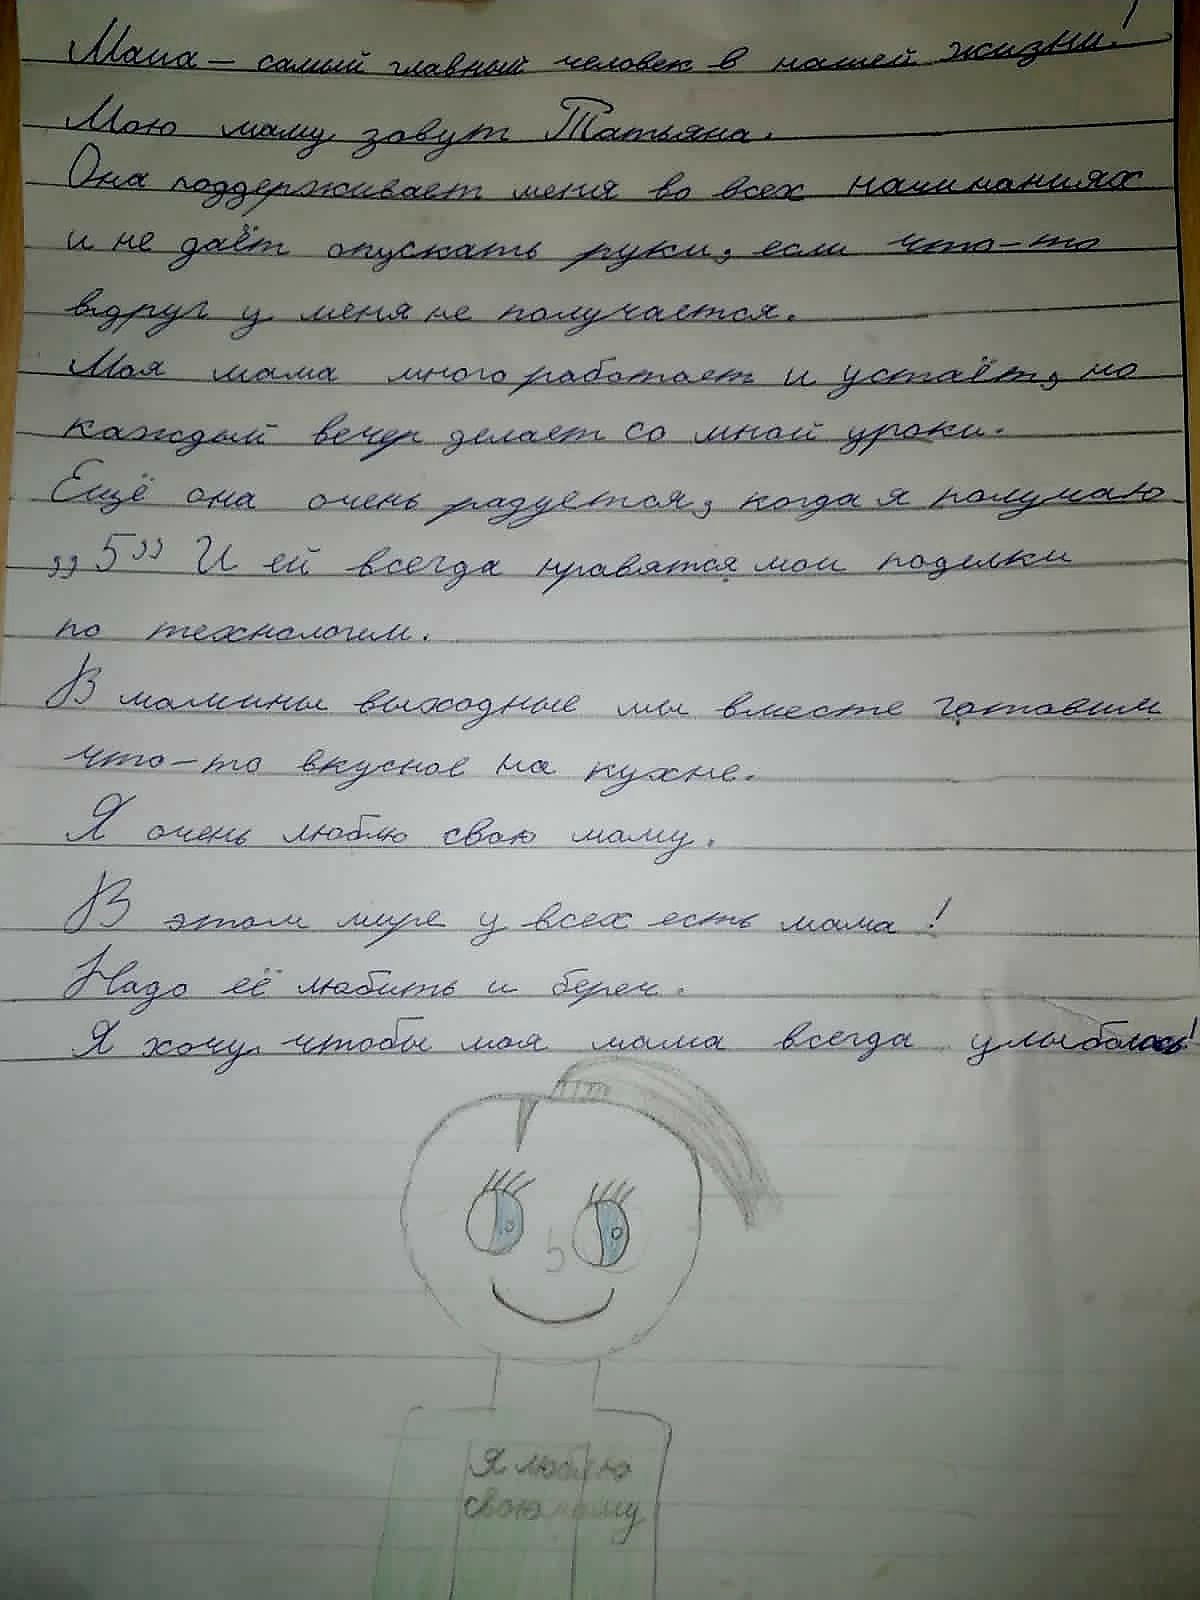 Мама – самый главный человек в нашей жизни!
Мою маму зовут Татьяна.
Она поддерживает меня во всех начинаниях
и не даёт опускать руки, если что-то
вдруг у меня не получается.
Моя мама много работает и устаёт, но
каждый вечер делает со мной уроки.
Ещё она очень радуется, когда я получаю
„5” И ей всегда нравятся мои поделки
по технологии.
В мамины выходные мы вместе готовим
что-то вкусное на кухне.
Я очень люблю свою маму.
В этом мире у всех есть мама!
Надо её любить и береч.
Я хочу чтобы моя мама всегда улыбалась!
Я люблю
свою маму